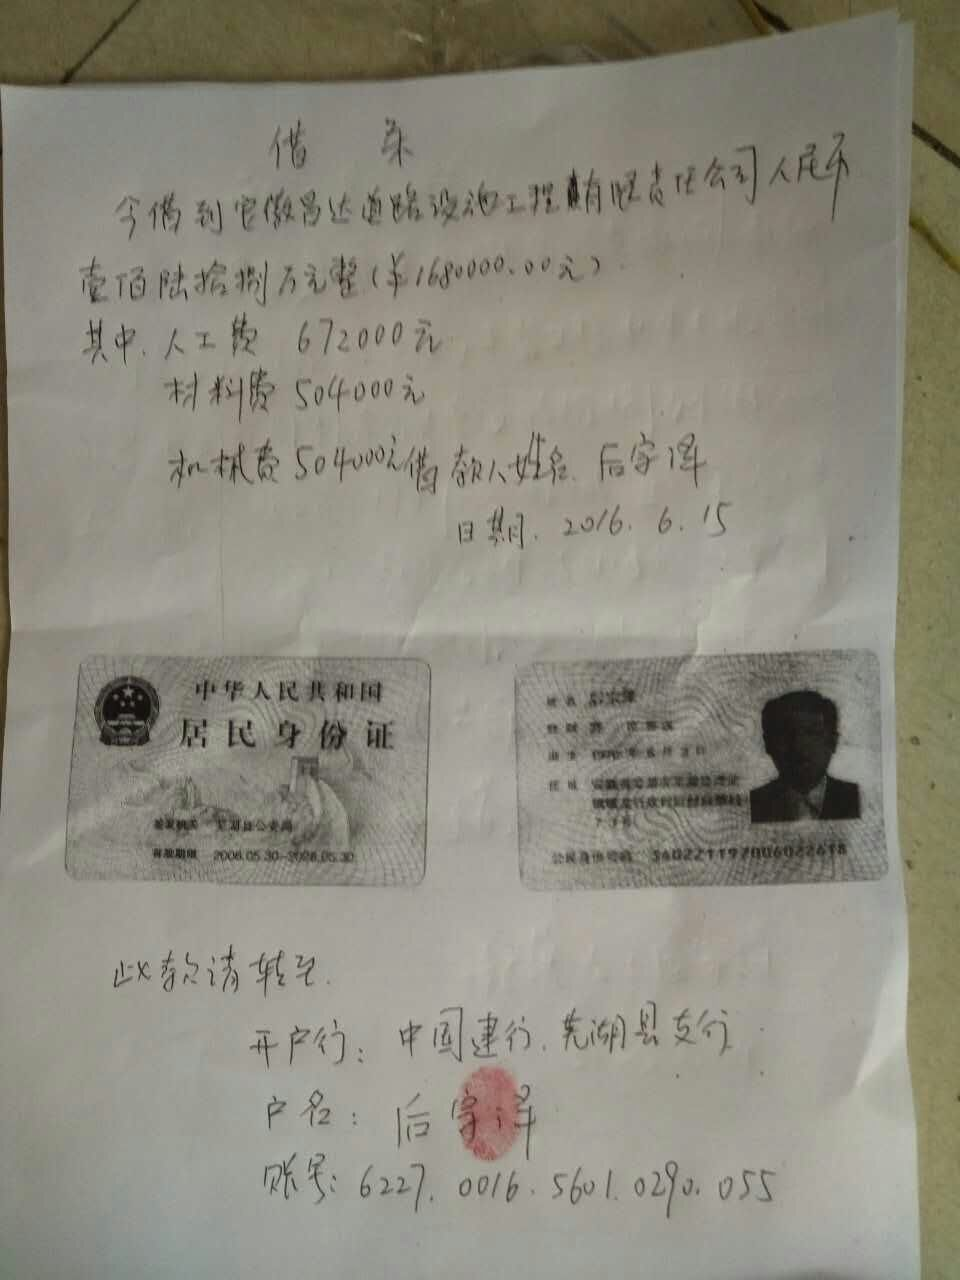 借条
今借到安徽昌达道路设施工程有限责任公司人民币
壹佰陆拾捌万元整(¥1680000.00元)
其中.人工费 672000元
材料费 504000元
机械费 504000元借款人姓名.后宗泽
日期.2016.6.15
中华人民共和国
居民身份证
签发机关 芜湖县公安局
有效期限 2006.05.30-2026.05.30
姓名 后宗泽
性别 男 民族汉
出生
住址
公民身份号码
此款请转至.
开户行:中国建行.芜湖县支行
户名:后宗泽
账号:6227.0016.5601.0290.055